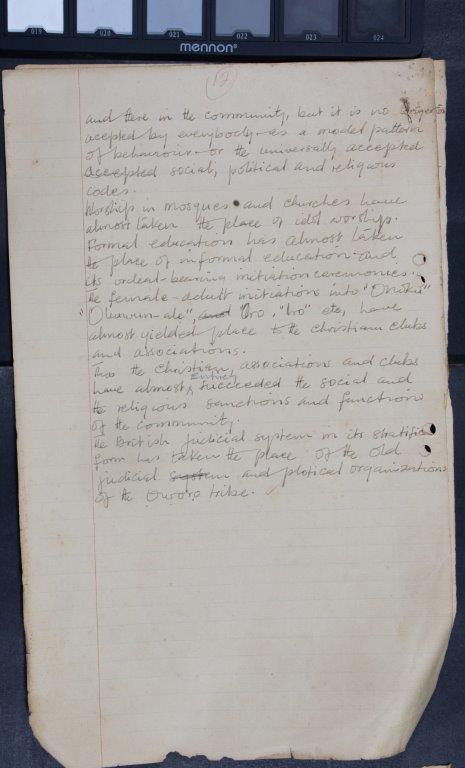 019 020 021 022 023 024
mennon®
12
and there in the community, but it is no longer
acepted by everybody as a model pattern
of behaviour or the universally accepted
accepted social, political and religious
codes.
Worship in mosques and churches have
almost taken the place of idol worship.
Formal education has almost taken
the place of informal education and
its ordeal-bearing initiation ceremonies.
The female-adult initiations into "Onoku"
almost yielded place to the christian clubs
and associations.
Thus the Christian, associations and clubs
have almost entirely succeeded the social and
the religious sanctions and functions
of the community.
the British judicial system in its stratified
form has taken the place of the old
judicial system and plotical organizations
of the Oworo tribe.